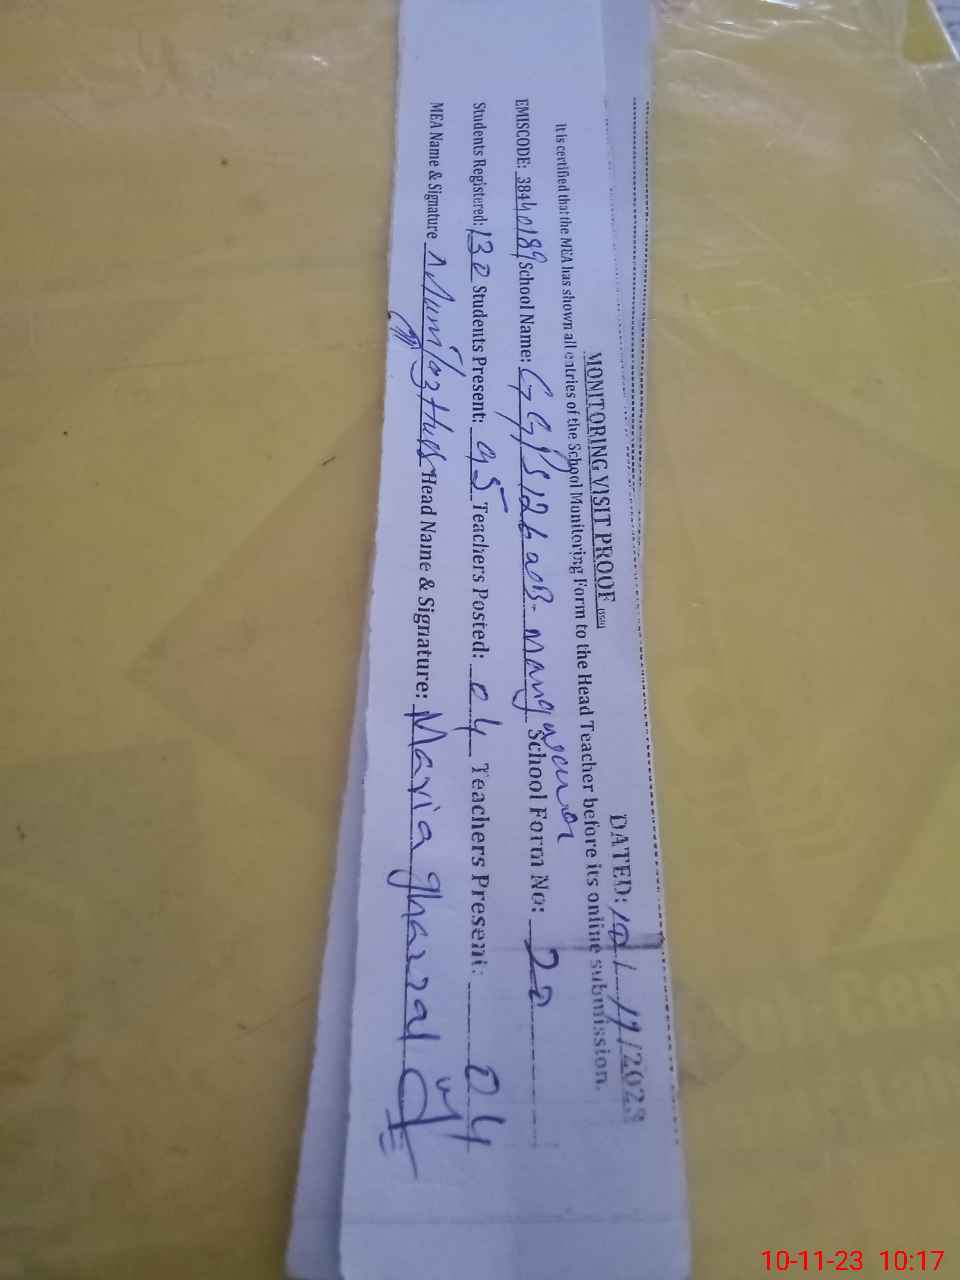 MONITORING VISIT PROOF
DATED: 10/11/2023
It is certified that the MEA has shown all entries of the School Monitoring Form to the Head Teacher before its online submission.
EMISCODE: 38440189 School Name: GGPS 126 School Form No: 20
Students Registered: 130 Students Present: 95 Teachers Posted: 04 Teachers Present: 04
MEA Name & Signature Head Name & Signature: Maria ghazal
10-11-23 10:17